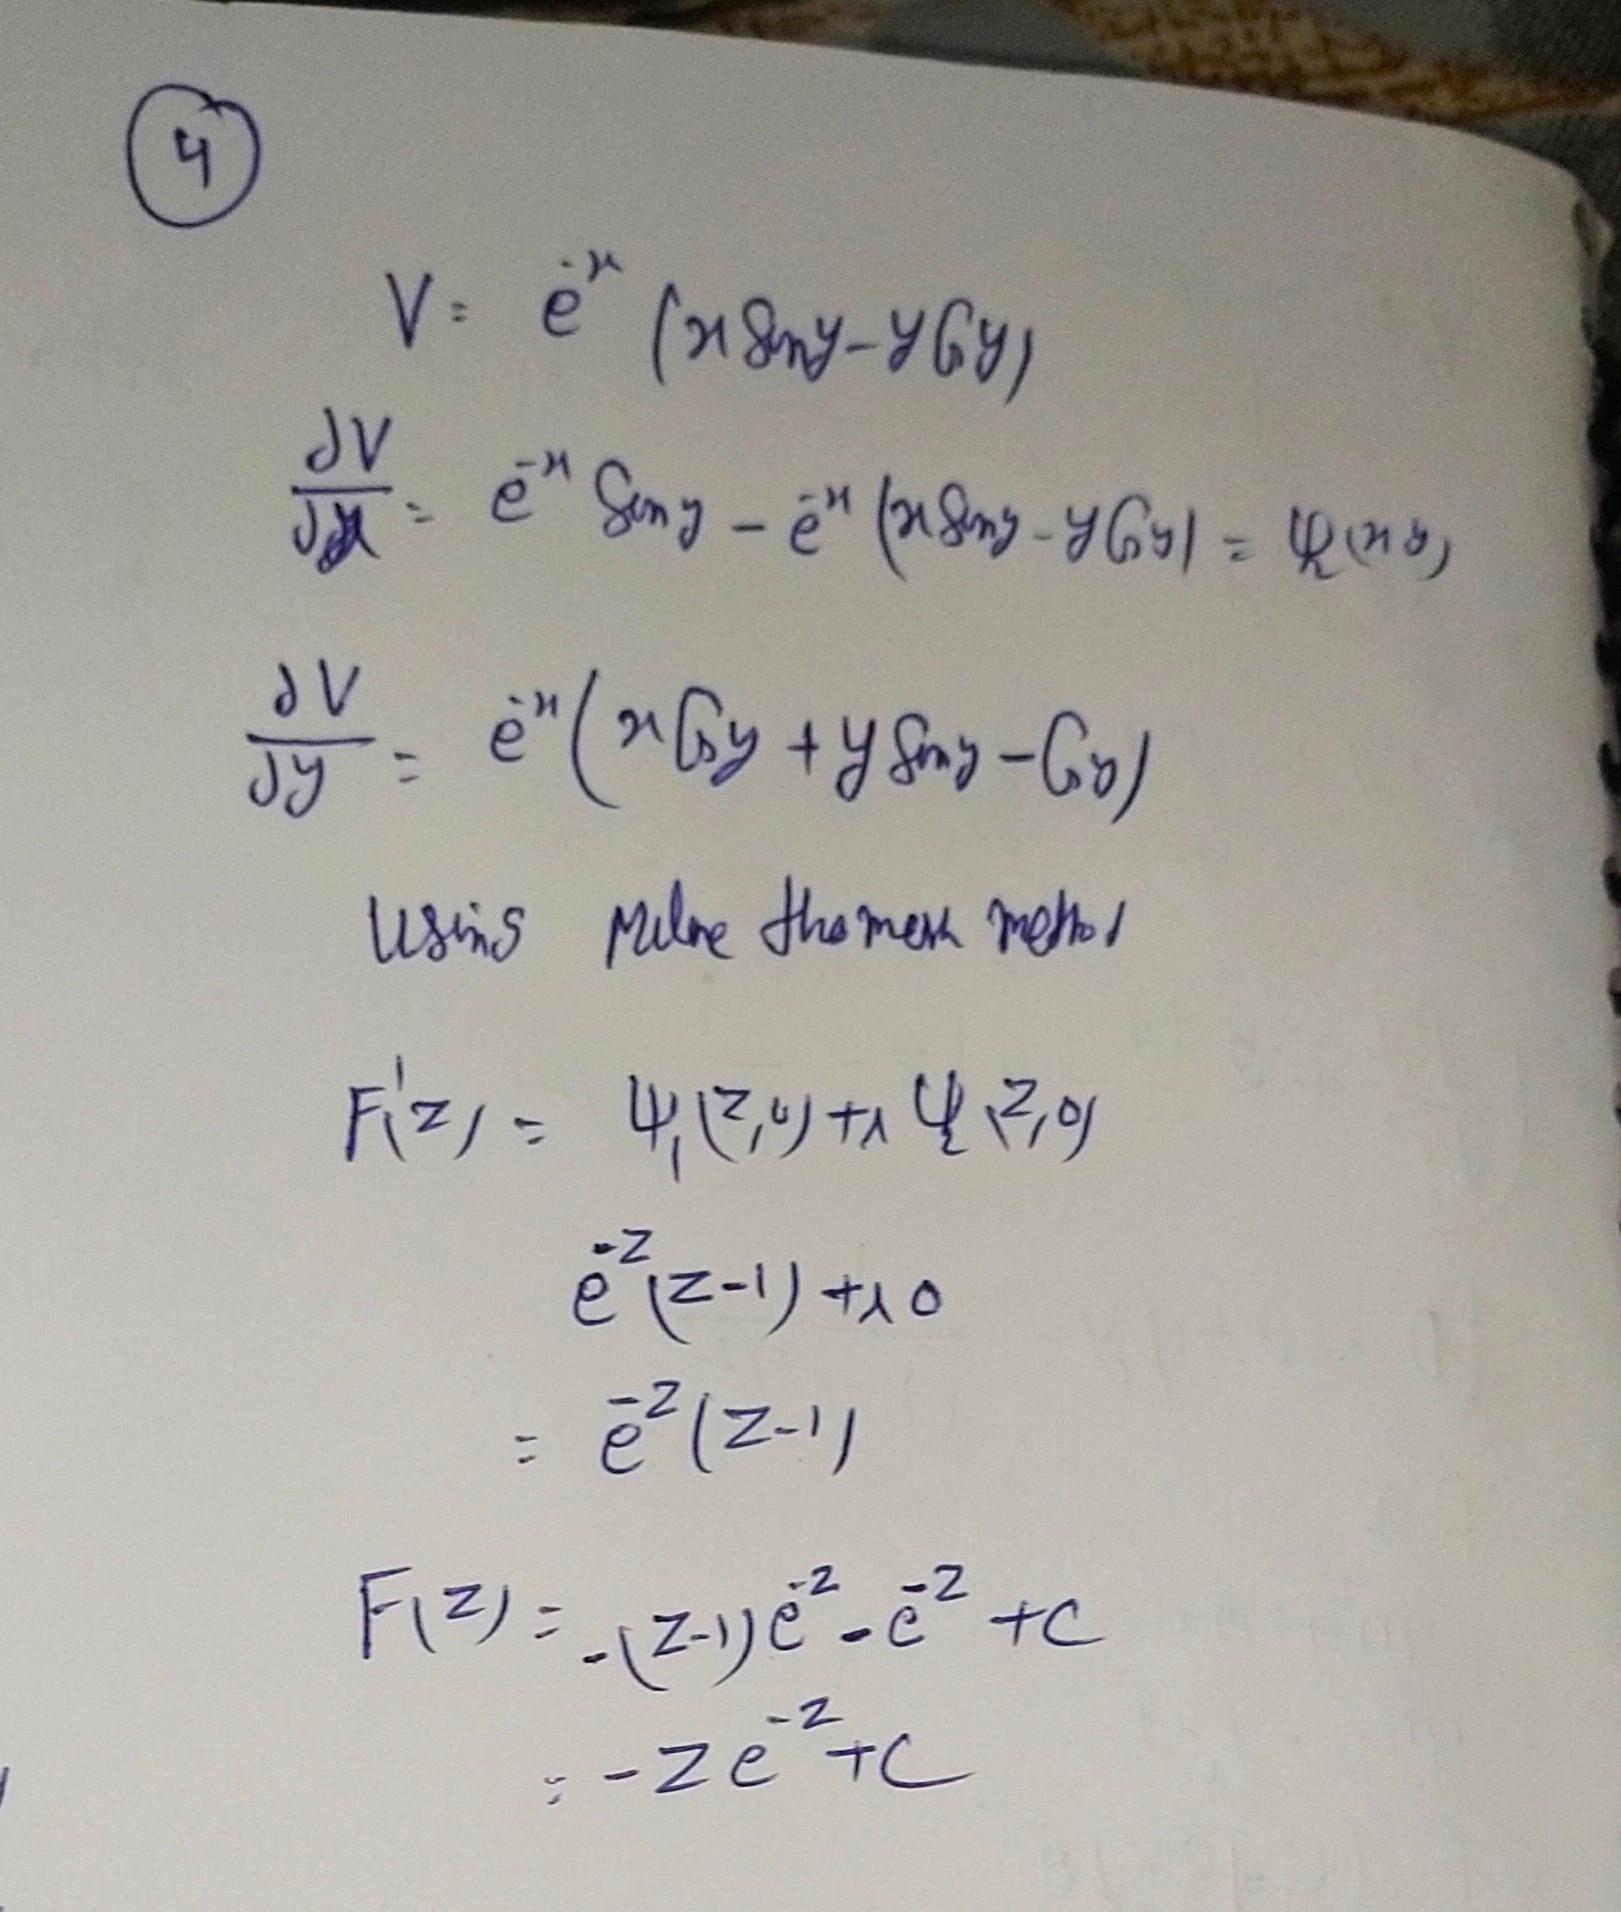 4
V = e^-x (x Sin y - y Cos y)
∂V/∂x = e^-x Sin y - e^-x (x Sin y - y Cos y) = ψ₂(x y)
∂V/∂y = e^-x (x Cos y + y Sin y - Cos y)
Using Milne thomson method
F'(z) = ψ₁(z,0) + i ψ₂(z,0)
e^-z (z-1) + i 0
= e^-z (z-1)
F(z) = -(z-1) e^-z - e^-z + C
= -z e^-z + C